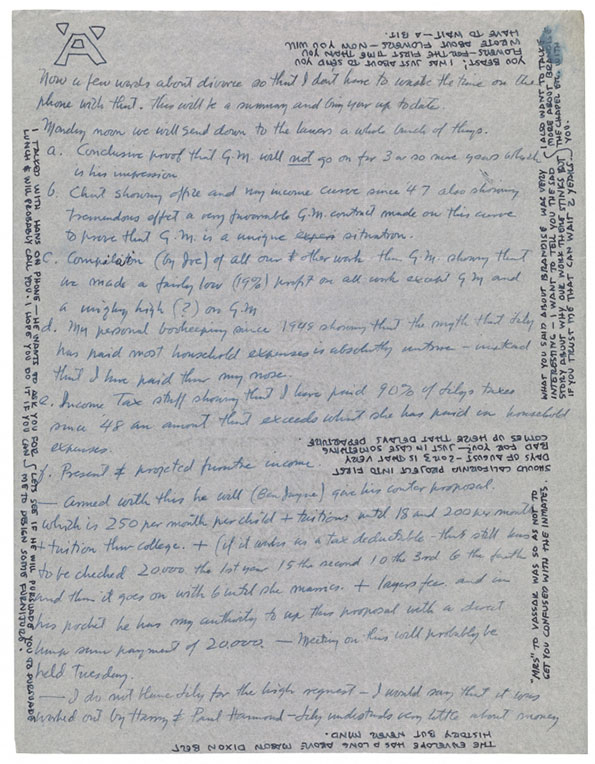 YOU BEAST, I WAS JUST ABOUT TO SEND YOU
FLOWERS–FOR THE FIRST TIME THAN YOU
WROTE ABOUT FLOWERS – NOW YOU WILL
HAVE TO WAIT – A BIT.
A
Now a few words about divorce so that I dont have to waste the time on the
phone with that. This will be a summary and bring your up to date.
Monday noon we will send down to the lawers a whole bunch of things.
a. Conclusive proof that G.M. will not go on for 3 or so more years which
is his impression
b. Chart showing office and my income curve since '47 also showing
tremendous effect a very favorable G.M. contract made on this curve
to prove that G.M. is a unique situation.
c. Compilation (by Joe) of all our other work than G.M. showing that
we made a fairly low (19%) profit on all work except G.M and
a mighty high (?) on G.M
d. My personal bookeeping since 1948 showing that the myth that Lily
has paid most household expenses is absolutly untrue – instead
that I have paid thru my nose.
e. Income Tax stuff showing that I have paid 90% of Lilys taxes
since 48 an amount that exceeds what she has paid in household
expenses.
f. Present & projected future income.
— armed with this he will give his counter proposal.
which is 250 per month per child + tuitions until 18 and 200 per month
+ tuition thru college. + (if it works as a tax deductable – that still has
to be checked 20000 the 1st year 15 the second 10 the 3rd 6 the fourth
and then it goes on with 6 until she marries. + lawyers fee. and in
his pocket he has my authority to up this proposal with a
lump sum payment of 20.000. — Meeting on this will probably be
held Tuesday.
— I do not blame Lily for the high request – I would say that it was
worked out by Harry & Paul Hammond – Lily understands very little about money
SHOULD CALIFORNIA PROJECT INTO FIRST
DAYS OF AUGUST – 2 OR 3 IS THAT VERY
BAD FOR YOU? JUST IN CASE SOMETHING
COMES UP HERE THAT DELAYS DEPARTURE
WHAT YOU SAID ABOUT BRANDISE WAS VERY
INTERESTING – I WANT TO TELL YOU THE SAD
STORY ABOUT WHY OUR WORK THERE STINKS BUT
IF YOU TRUST ME THAT CAN WAIT 2 YEARS.
I ALSO WANT TO TALK
MORE ABOUT BRANDISE
THE CHAPEL ETC WITH
YOU.
"MRS" TO VASSAR WAS SO AS NOT TO
GET YOU CONFUSED WITH THE INMATES.
I TALKED WITH HANS ON PHONE – HE WANTS TO ASK YOU FOR
LUNCH & WILL PROBABLY CALL YOU. I HOPE YOU DO IT IF YOU CAN
LETS SEE IF HE WILL PURSUADE YOU TO PURSUADE
ME TO DESIGN SOME FURNITURE.
THE ENVELOPE HAS A LONG ABOVE MASON DIXON BELT
HISTORY BUT NEVER MIND.